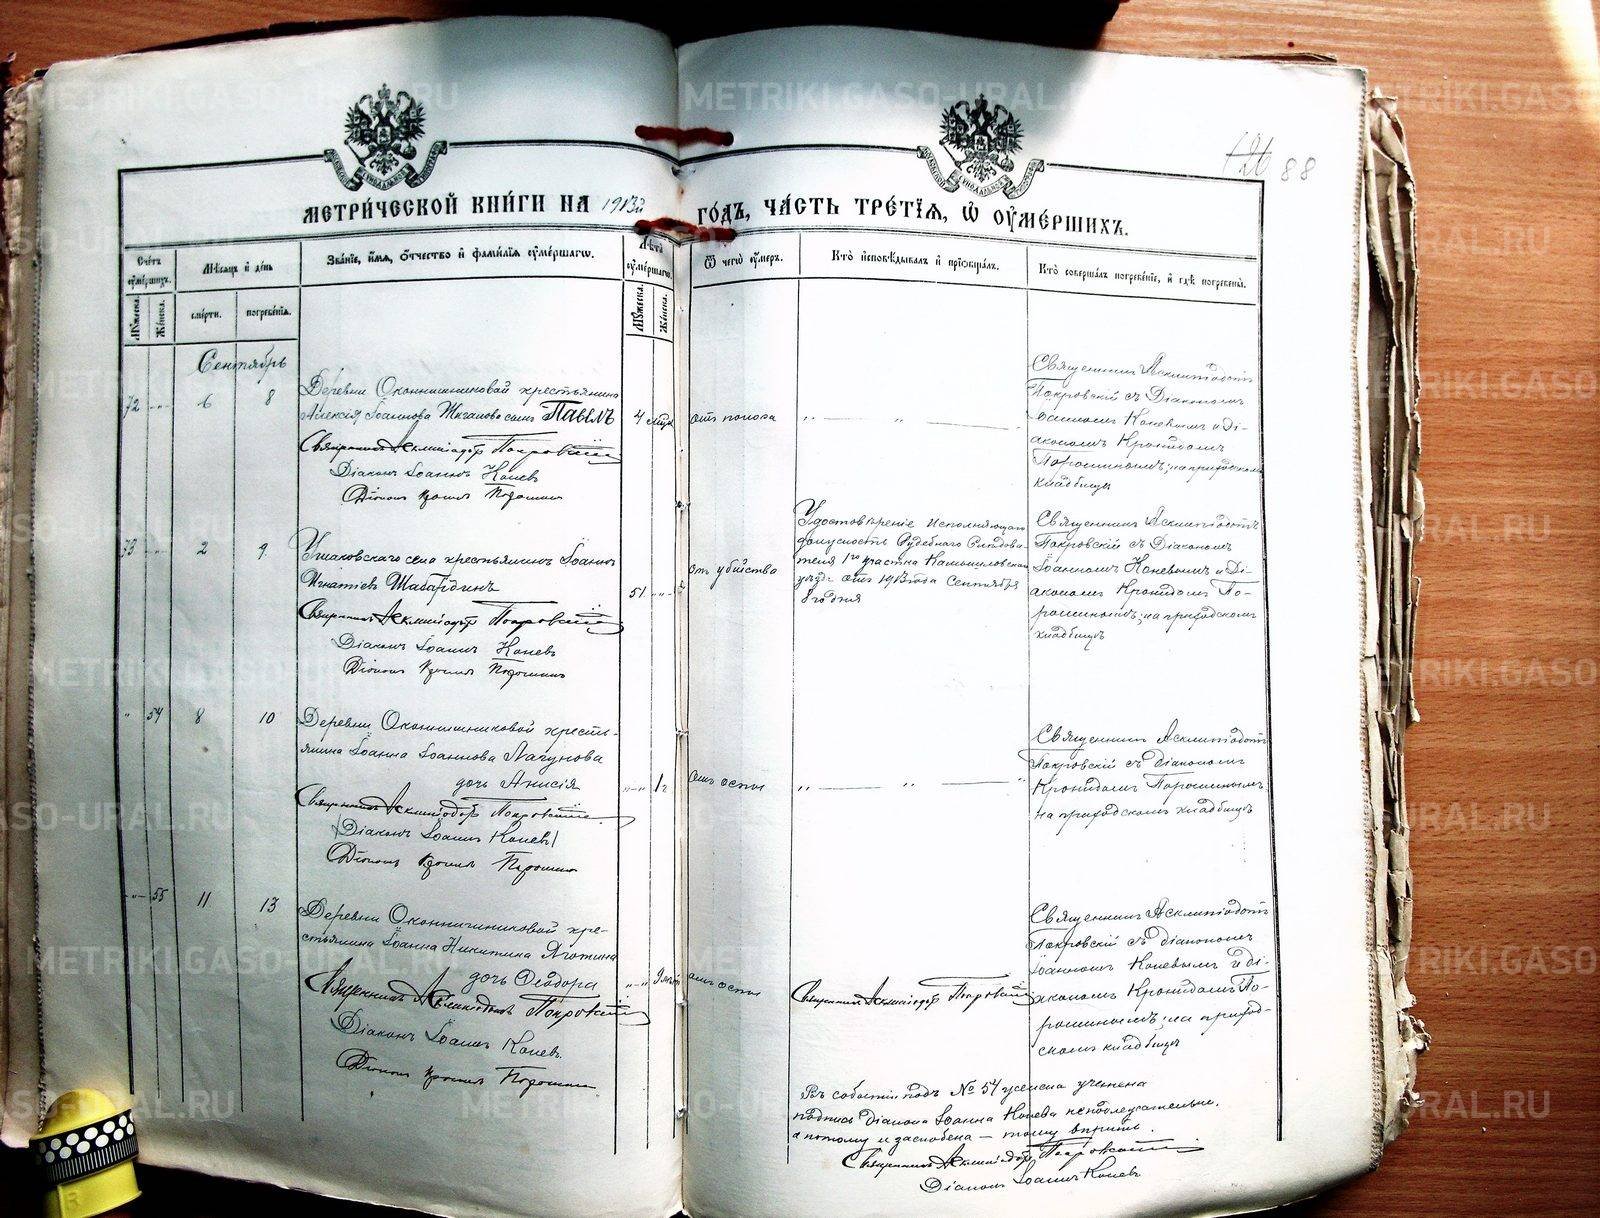 126 88
МЕТРИЧЕСКОЙ КНИГИ НА 1913й ГОДЪ, ЧАСТЬ ТРЕТІЯ, Ѿ ОУМЕРШИХЪ.
Счетъ оумершихъ.
Мѣсяцъ и день
Званіе, имя, отчество и фамилія оумершагѡ.
Лѣта оумершагѡ.
Ѿ чегѡ оумеръ.
Кто исповѣдывалъ и пріобщалъ.
Кто совершалъ погребеніе, и гдѣ погребены.
Мужеска.
Женска.
смерти.
погребенія.
Мужеска.
Женска.
Сентябрь
72 6 8
Деревни Оконишниковой крестьянина
Алексія Іоаннова сынъ Павелъ
4 отъ поноса
Священникъ Асклипіодотъ Покровскій
Діаконъ Іоаннъ Коневъ
Діаконъ Порошинъ
Священникъ Асклипіодотъ
Покровскій съ Діакономъ
Іоанномъ Коневымъ и Ді-
акономъ Кронидомъ
Порошинымъ; на приходскомъ
кладбищѣ
73 2 9
Ушаковскаго села крестьянинъ Іоаннъ
Игнатіевъ Шабардинъ
51 отъ убійства
Священникъ Асклипіодотъ Покровскій
Діаконъ Іоаннъ Коневъ
Діаконъ Порошинъ
Удостовѣреніе Исполняющаго
должность Судебнаго Слѣдова-
теля 1го участка Камышловскаго
уѣзда отъ 1913 года Сентября
8 го дня
Священникъ Асклипіодотъ
Покровскій съ Діакономъ
Іоанномъ Коневымъ и Ді-
акономъ Кронидомъ По-
рошинымъ; на приходскомъ
кладбищѣ
54 8 10
Деревни Оконишниковой кресть-
янина Іоанна Іоаннова Лагунова
дочь Анисія
1 г отъ оспы
Священникъ Асклипіодотъ Покровскій
Діаконъ Іоаннъ Коневъ
Діаконъ Порошинъ
Священникъ Асклипіодотъ
Покровскій съ діакономъ
Кронидомъ Порошинымъ
на приходскомъ кладбищѣ
55 11 13
Деревни Оконишниковой кре-
стьянина Іоанна Никитина
дочь Ѳеодора
9 отъ оспы
Священникъ Асклипіодотъ Покровскій
Діаконъ Іоаннъ Коневъ.
Діаконъ Порошинъ
Священникъ Асклипіодотъ Покровскій
Священникъ Асклипіодотъ
Покровскій съ діакономъ
Іоанномъ Коневымъ и ді-
акономъ Кронидомъ По-
рошинымъ; на приход-
скомъ кладбищѣ
Въ событіи подъ № 54 женска учинена
подпись діакона Іоанна Конева
а потому и заскоблена – тому вѣрить.
Священникъ Асклипіодотъ Покровскій
Діаконъ Іоаннъ Коневъ
METRIKI.GASO-URAL.RU